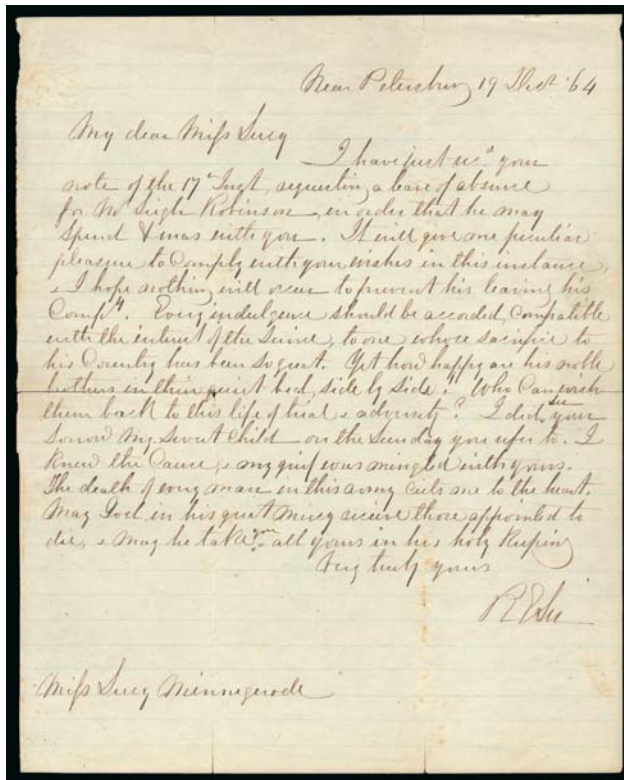 Near Petersburg 19 Decr '64
My dear Miss Lucy
I have just recd your
note of the 17th Inst, requesting a leave of absence
for Mr Leigh Robinson, in order that he may
spend Xmas with you. It will give me peculiar
pleasure to comply with your wishes in this instance,
& I hope nothing will occur to prevent his leaving his
Compy. Every indulgence should be accorded, compatible
with the interest of the Service, to one whose sacrifice to
his Country has been so great. Yet how happy are his noble
brothers in their quiet bed, side by side. Who can wish
them back to this life of trial & adversity? I did see your
sorrow my sweet child on the Sunday you refer to. I
knew the cause, & my grief was mingled with yours.
The death of every man in this army cuts me to the heart.
May God in his great mercy receive those appointed to
die, & may he take you & all yours in his holy keeping
Very truly yours
R E Lee
Miss Lucy Minnegerode